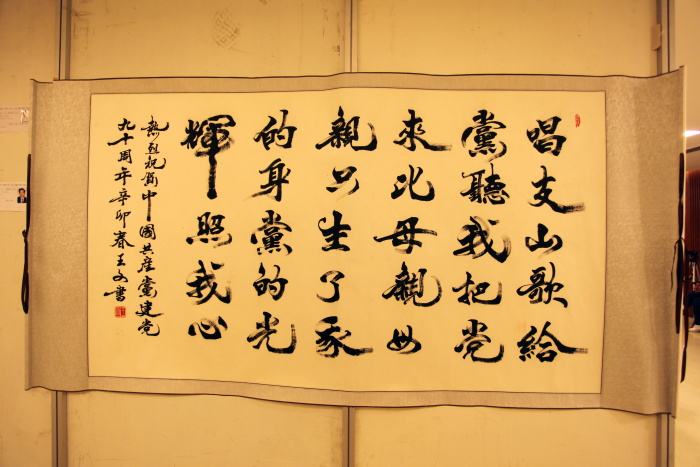 唱支山歌給
黨聽我把党
來比母親母
親只生了我
的身黨的光
輝照我心
熱烈祝賀中國共産黨建党
九十周年辛卯春王書